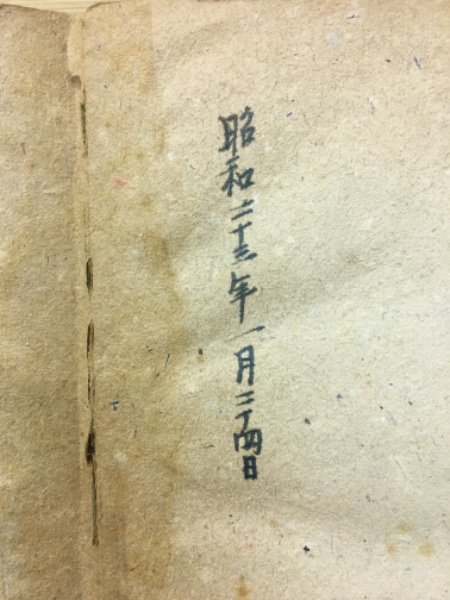 昭和二十三年一月二十四日